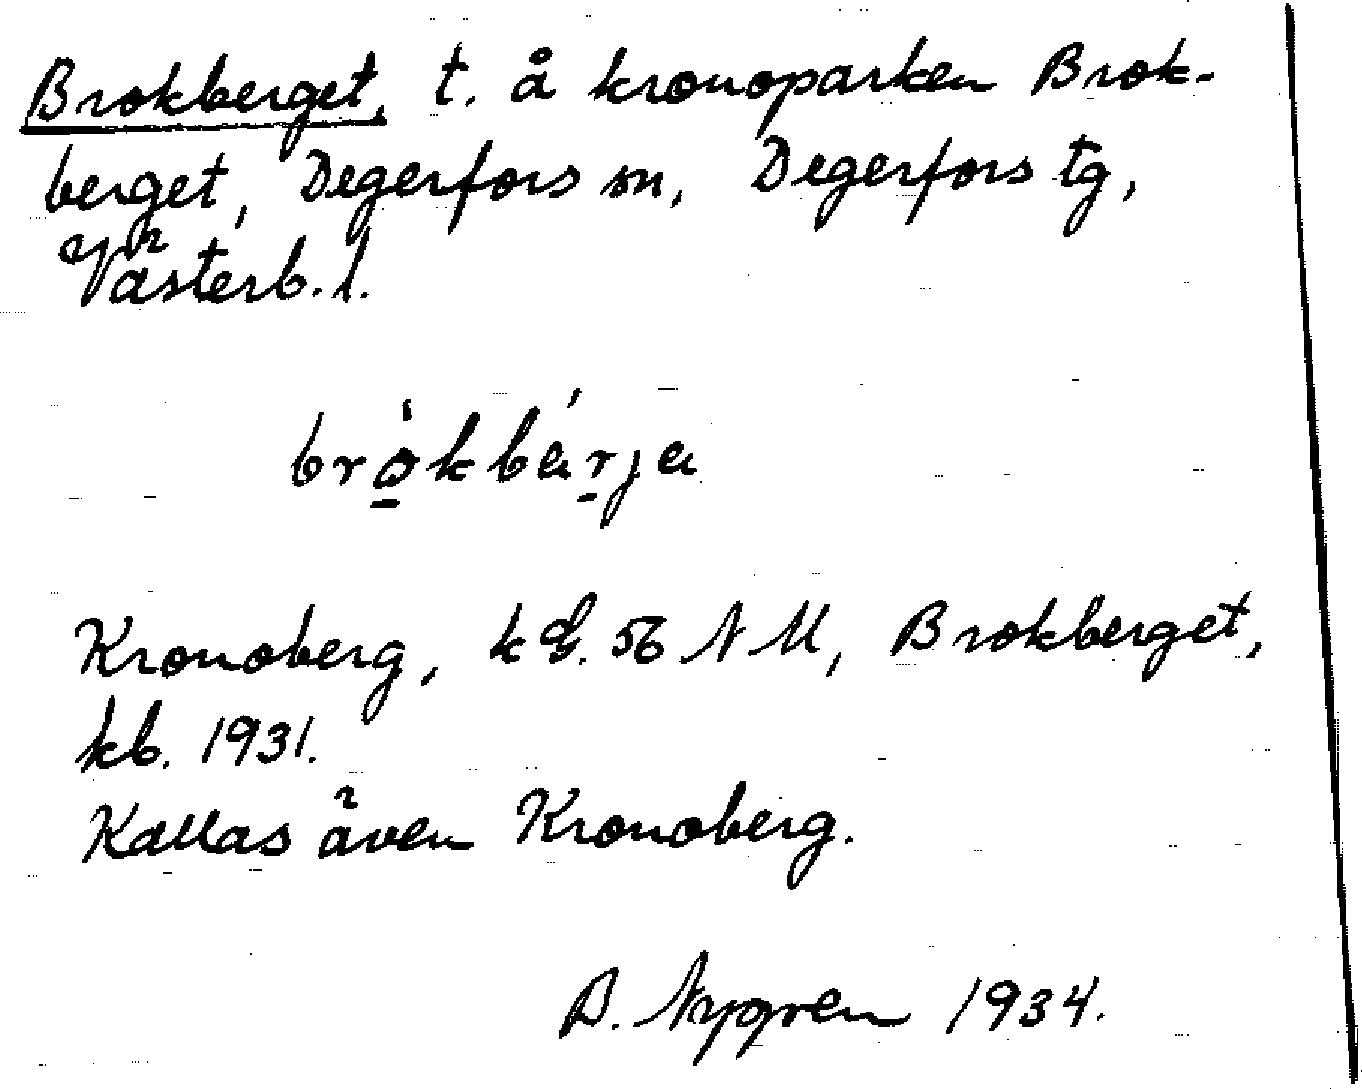 Brokberget, t. å kronoparken Brok-
berget, Degerfors sn, Degerfors tg,
Västerb. l.
brò̱kbár̠ja
Kronoberg, k G. 56 NM, Brokberget,
kb. 1931.
Kallas även Kronoberg.
B. Nygren 1934.